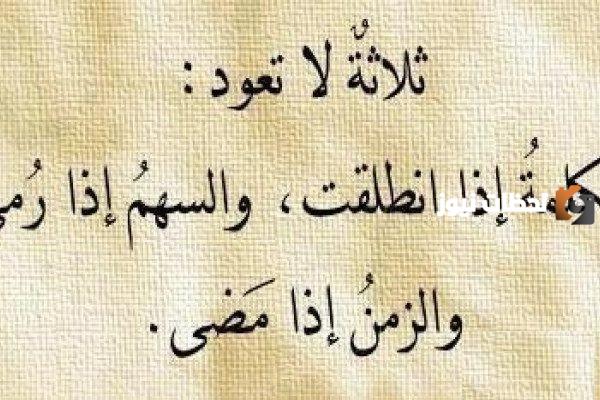 ثلاثةٌ لا تعود :
كلمةُ إذا انطلقت، والسهمُ إذا رُمي
والزمنُ إذا مَضى.
لحظات نيوز